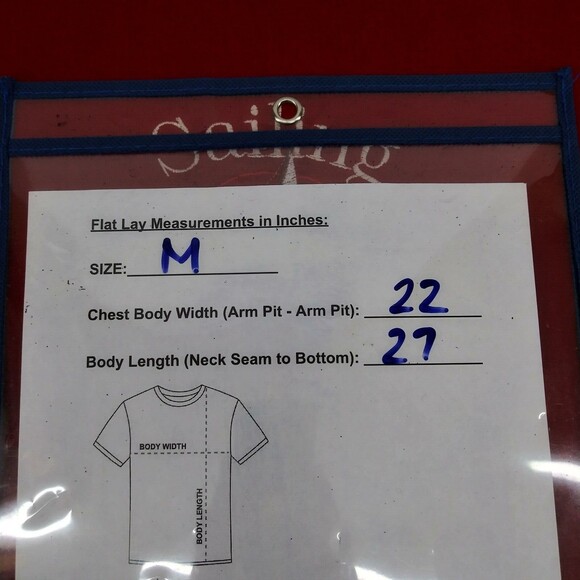 Sailing
Flat Lay Measurements in Inches:
SIZE: M
Chest Body Width (Arm Pit - Arm Pit): 22
Body Length (Neck Seam to Bottom): 27
BODY WIDTH
BODY LENGTH